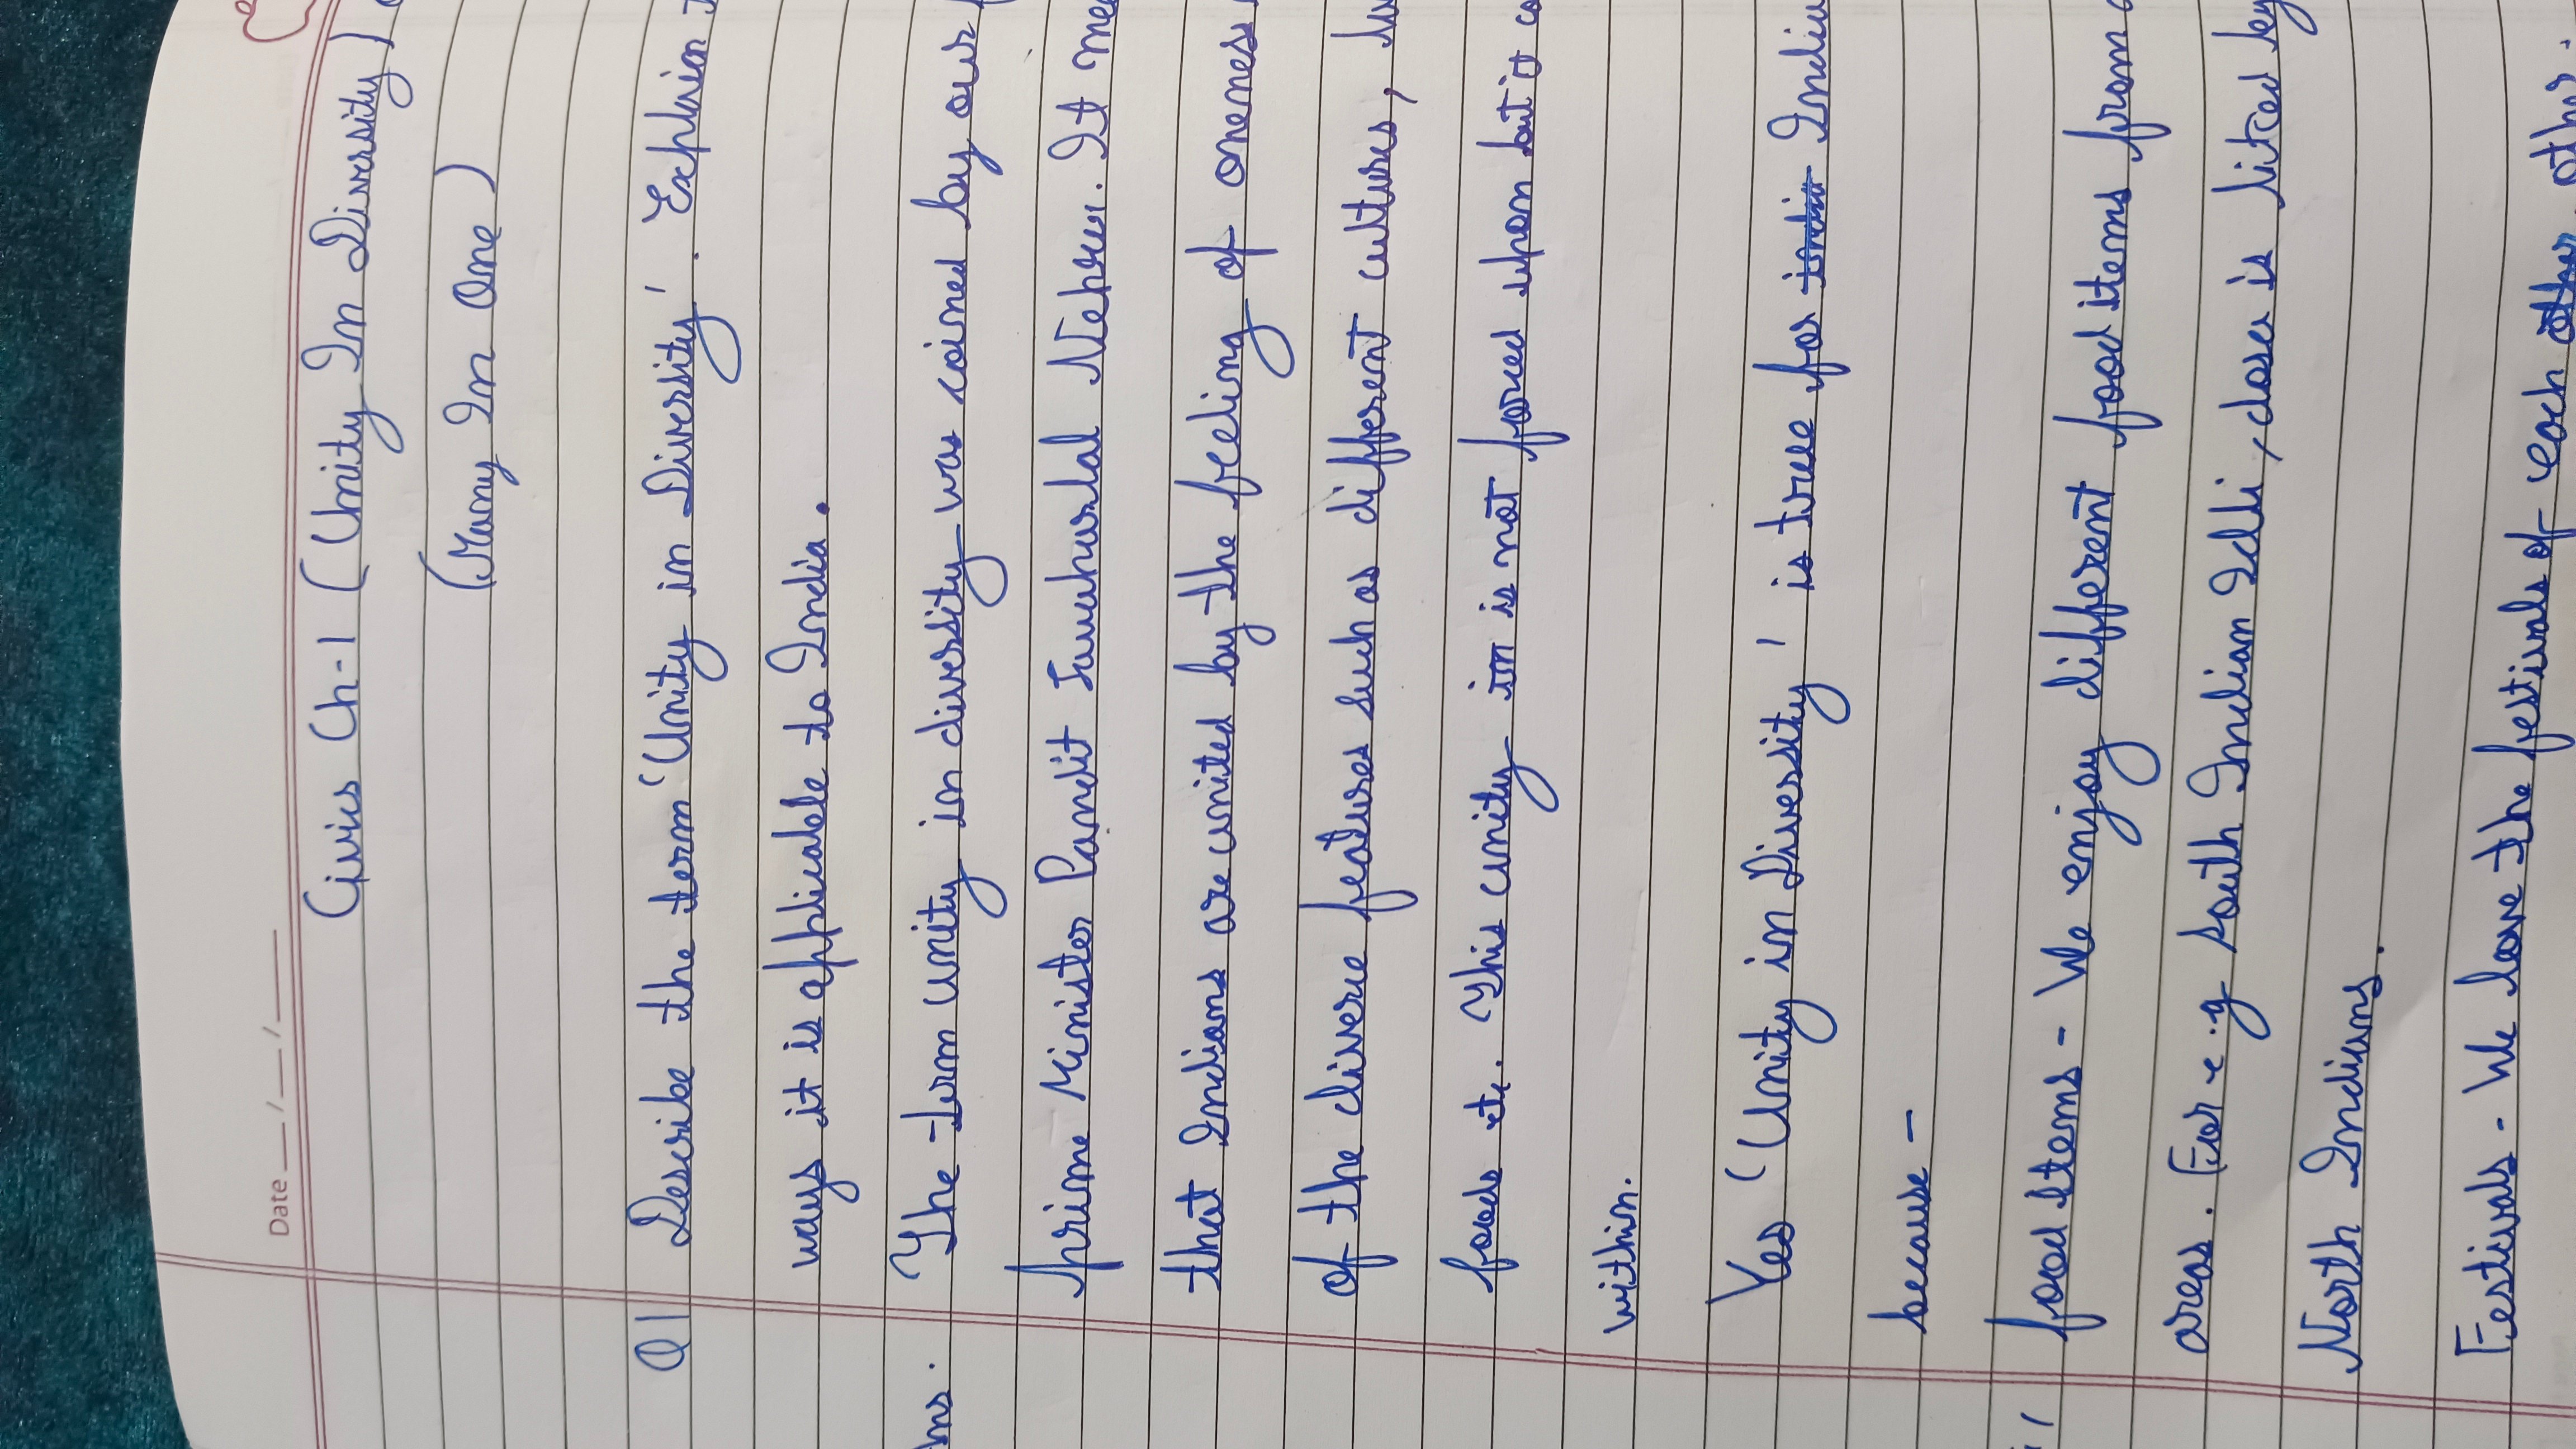 Date __/__/__
Civics Ch-1 (Unity In Diversity)
(Many In One)
Q1 Describe the term 'Unity in Diversity'. Explain
ways it is applicable to India.
Ans. The term unity in diversity was coined by our
prime Minister Pandit Jawaharlal Nehru. It me
that Indians are united by the feeling of oneness
of the diverse features such as different cultures,
foods etc. This unity in is not forced upon but it co
within.
Yes 'Unity in Diversity' is true for India
because -
food Items - We enjoy different food items from
areas. For e.g South Indian Idli, dosa is liked by
North Indians.
Festivals - We love the festivals of each other other.